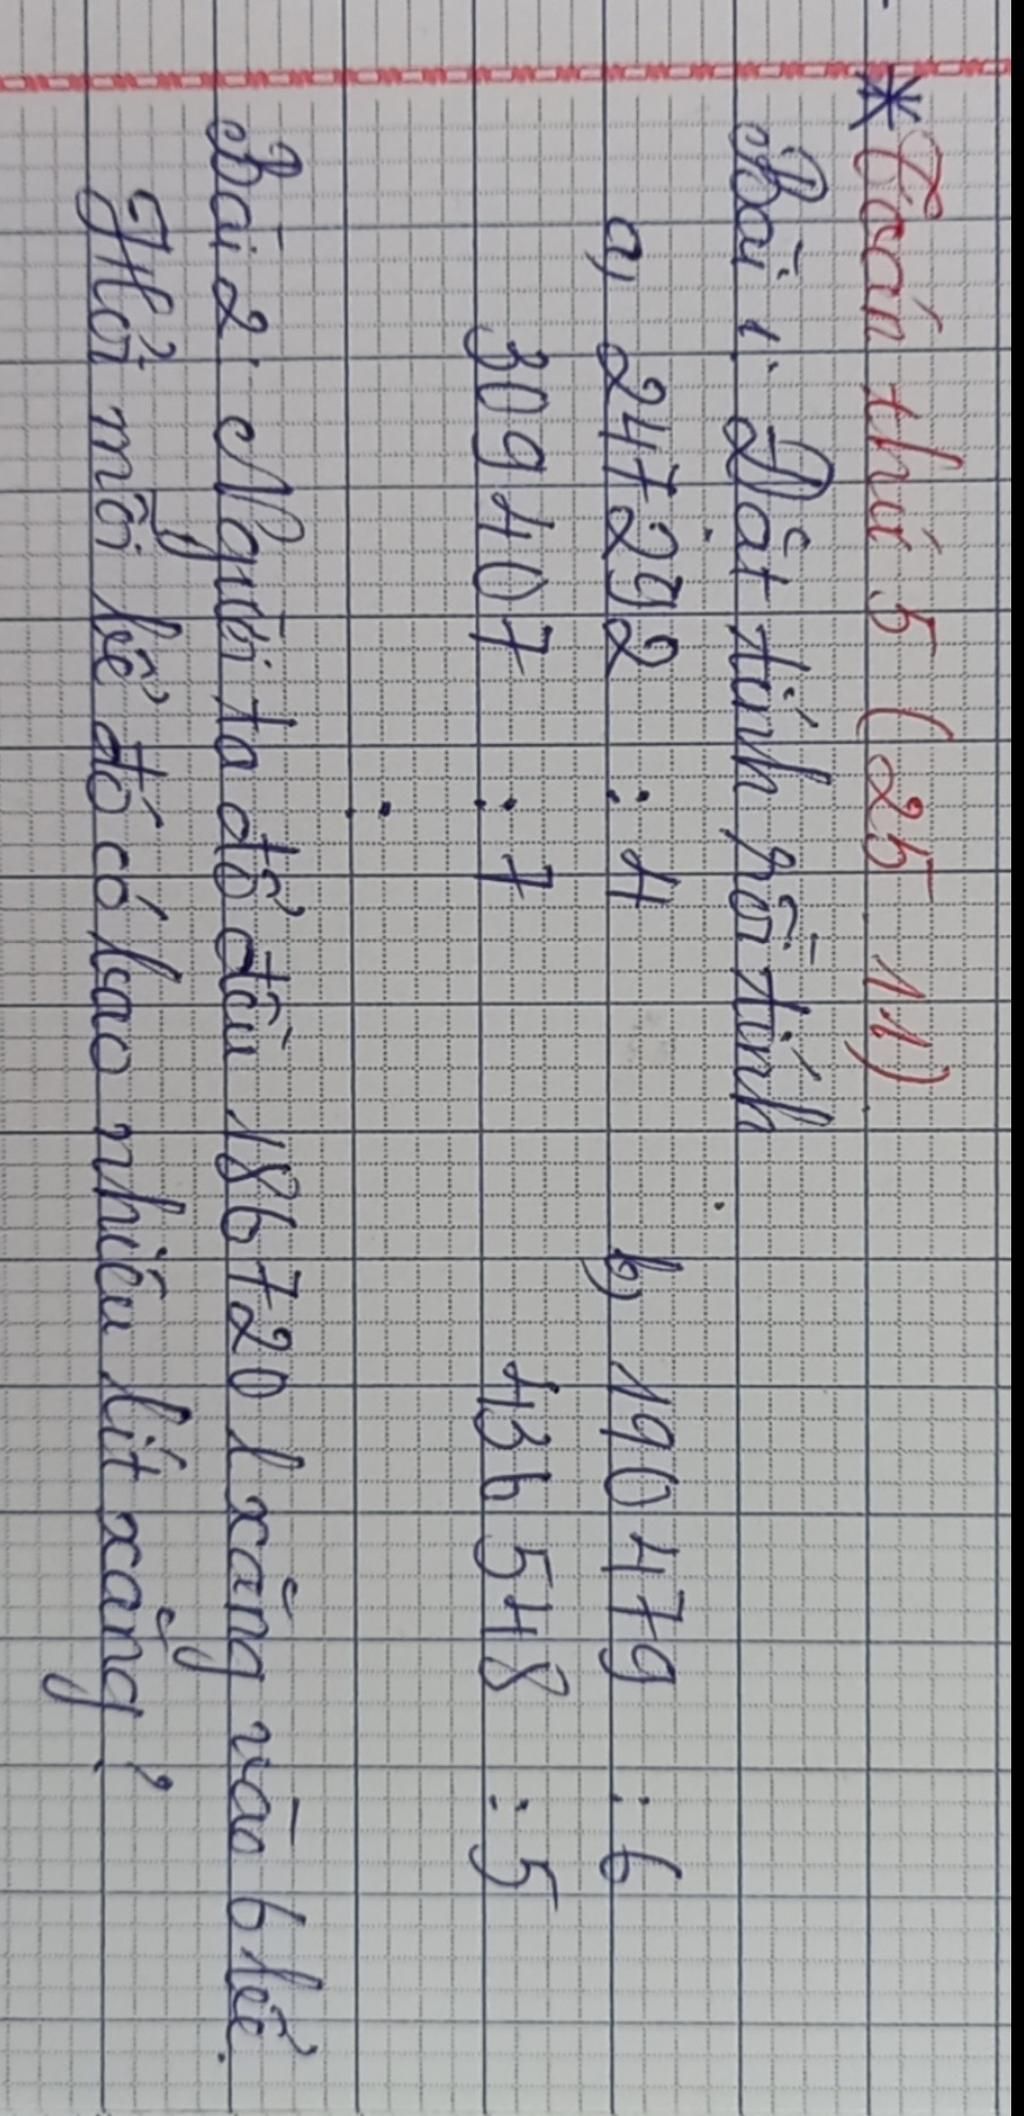 * Toán thứ 5 (25.11)
Bài 1. Đặt tính rồi tính
a) 247292 : 4 b) 190479 : 6
309407 : 7 436548 : 5
Bài 2. Người ta đổ đều 186720 l xăng vào 6 bể.
Hỏi mỗi bể đó có bao nhiêu lít xăng?